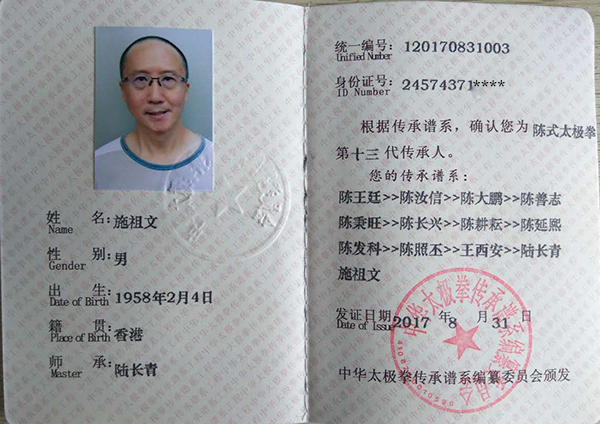 姓 名:施祖文
Name
性 别:男
Gender
出 生:1958年2月4日
Date of Birth
籍 贯:香港
Place of Birth
师 承:陆长青
Master
统一编号:120170831003
Unified Number
身份证号:24574371****
ID Number
根据传承谱系,确认您为 陈式太极拳
第十三 代传承人。
您的传承谱系:
陈王廷>>陈汝信>>陈大鹏>>陈善志
陈秉旺>>陈长兴>>陈耕耘>>陈延熙
陈发科>>陈照丕>>王西安>>陆长青
施祖文
发证日期:2017 年 8 月 31 日
Date of Issue
中华太极拳传承谱系编纂委员会
中华太极拳传承谱系编纂委员会颁发